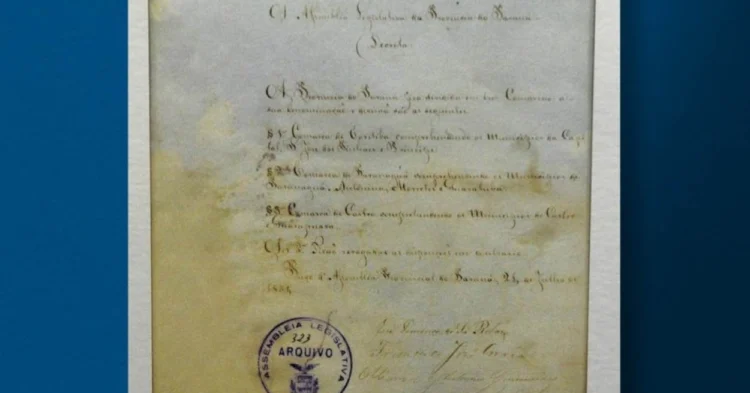 A Assembléa Legislativa da Provincia do Paraná
Decreta
A Provincia do Paraná fica dividida em tres Comarcas, a
sua denominação e divisão são as seguintes
§ 1º Comarca de Coritiba comprehendendo os Municipios da Capi
tal, S. José dos Pinhaes e Principe.
§ 2ª Comarca de Paranaguá comprehendendo os Municipios de
Paranaguá, Antonina, Morretes e Guaratuba.
§ 3ª Comarca de Castro comprehendendo os Municipios de Castro
e Guarapuava.
Art. 2º Ficão revogadas as disposições em contrario.
Paço d'Assembléa Provincial do Paraná, 24 de Julho de
1854
ASSEMBLEIA LEGISLATIVA
323
ARQUIVO